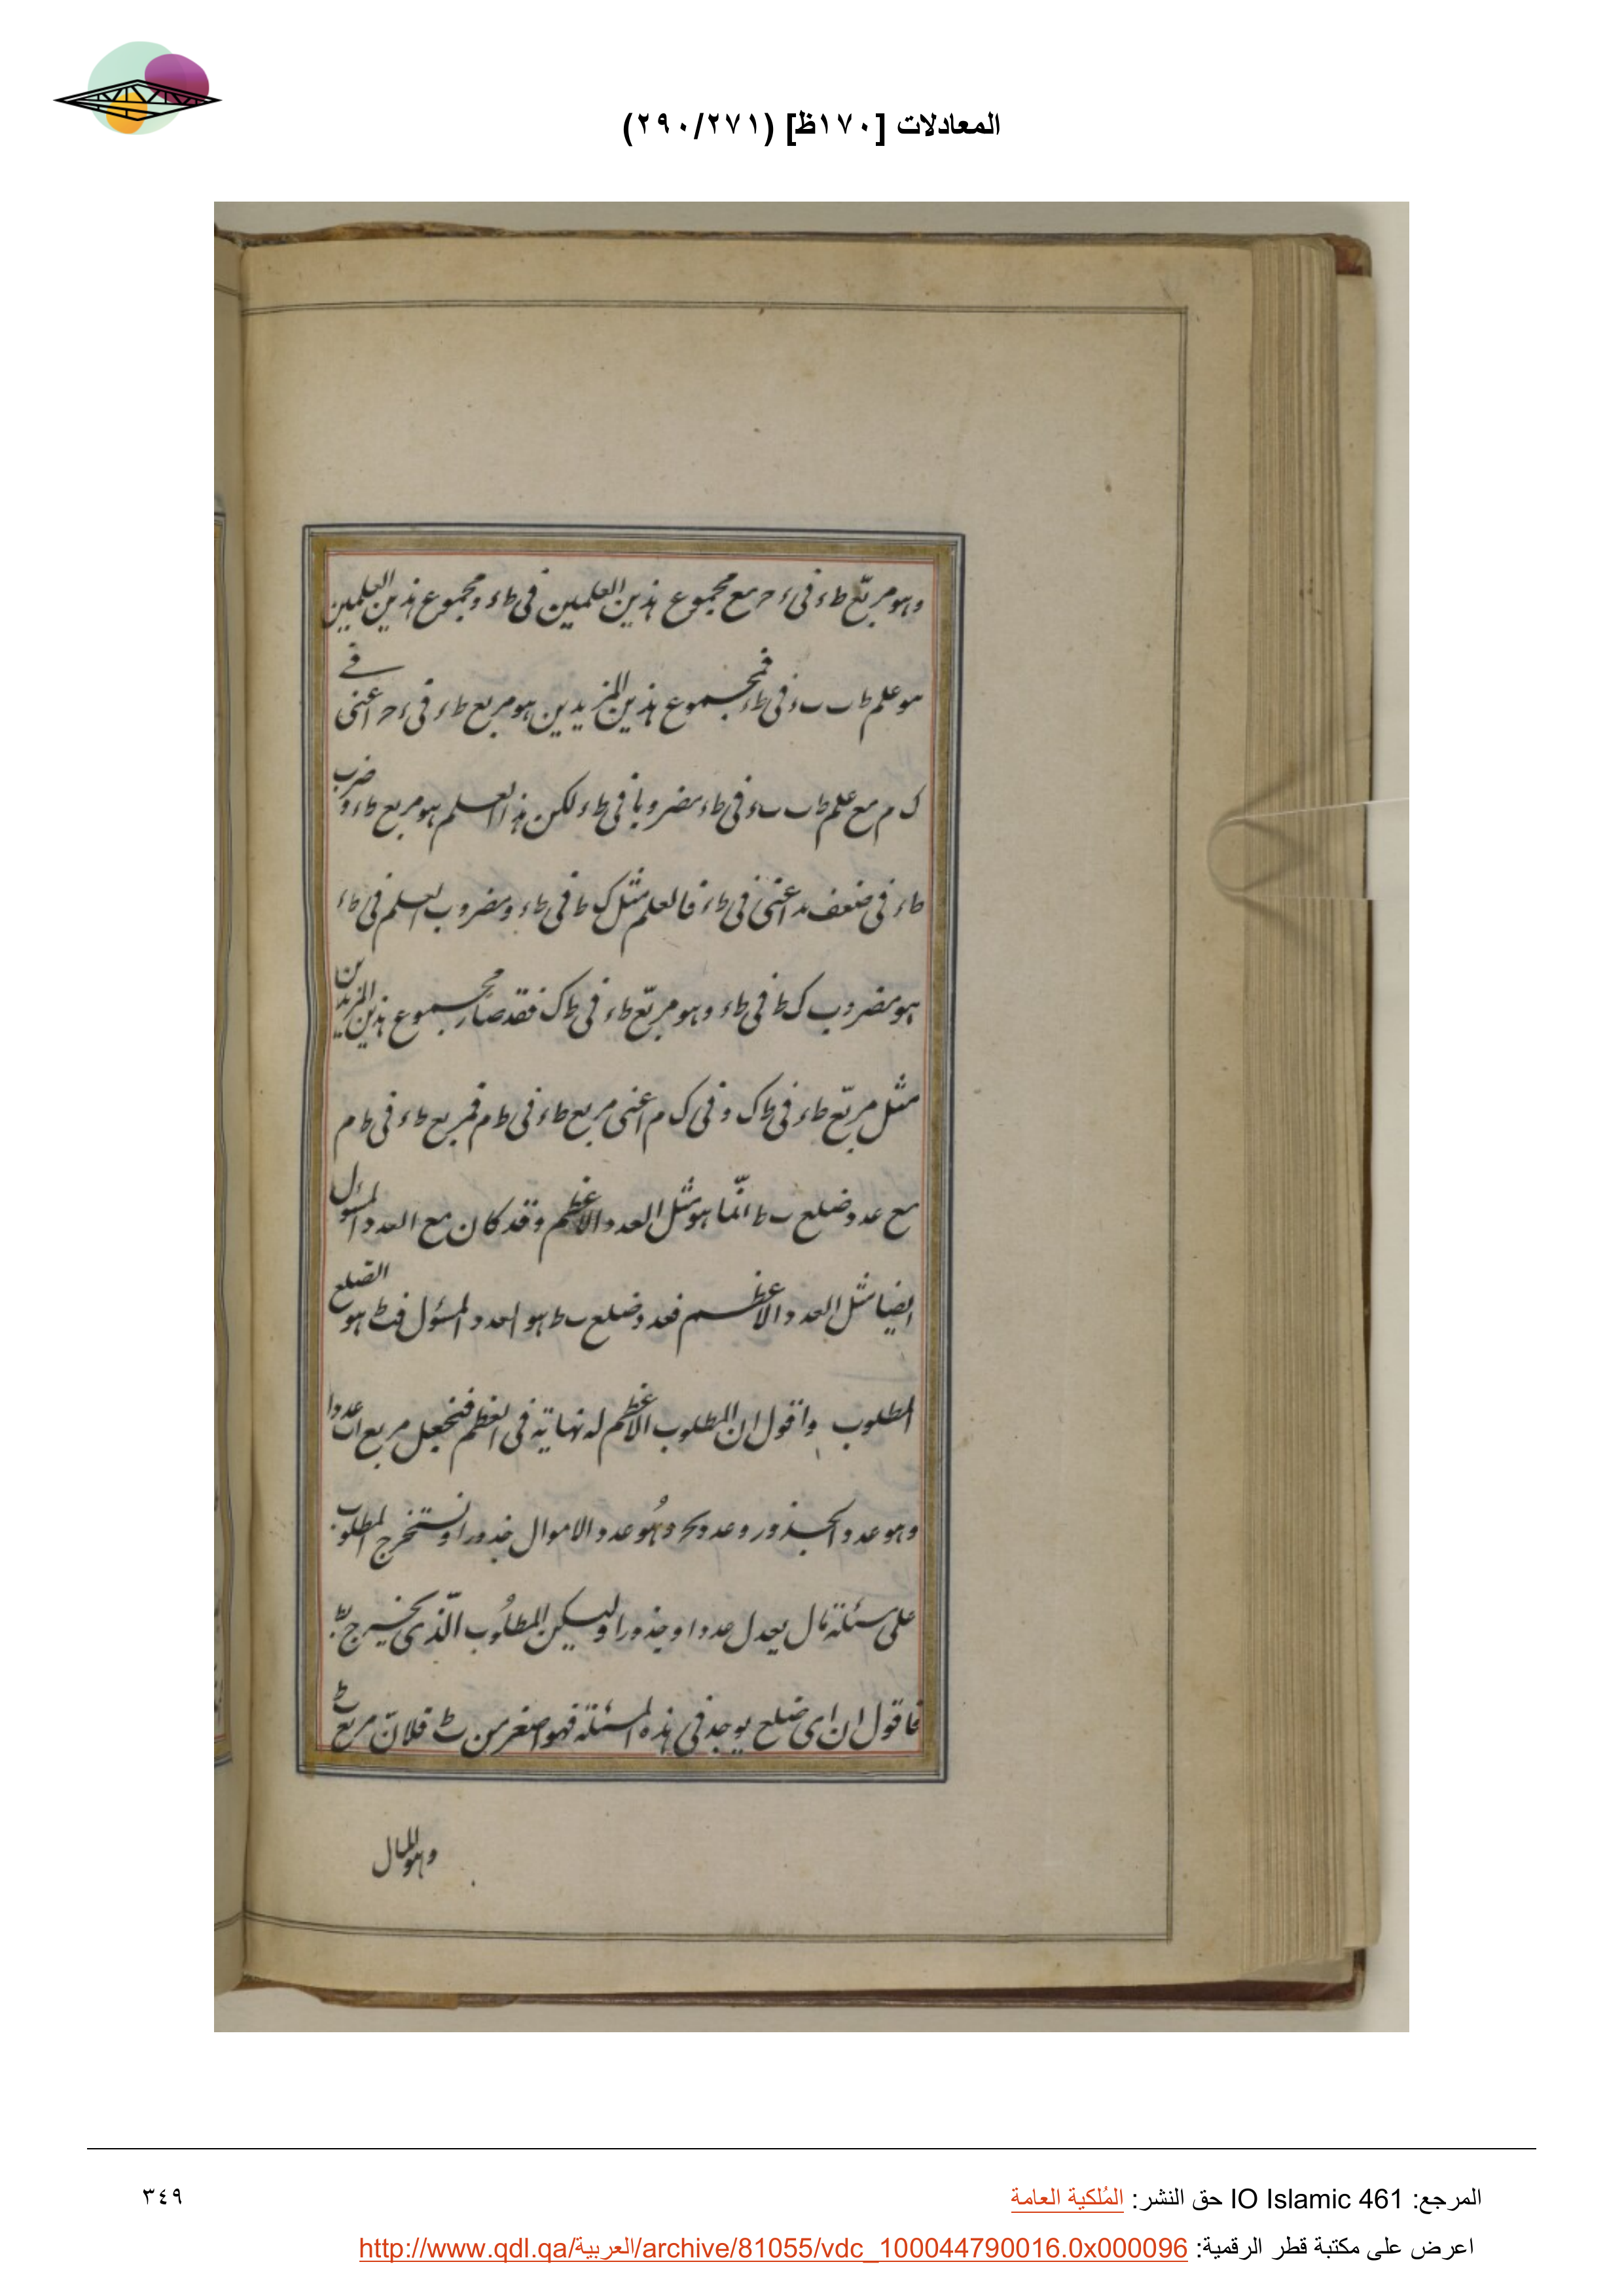 المعادلات [١٧٠ظ] (٢٩٠/٢٧١)
وهو مربّع ط ء فى ء ح مع مجموع هذين العلمين فى ط ء ومجموع هذين العلمين
هو علم ط ب ب ء فى ط ء فمجموع هذين المزيدين هو مربع ط ء فى ء ح اعنى فے
ك م مع علم ط ب ب ء فى ط ء مضروبا فى ط ء لكن هذا العلم هو مربع ط ء و ضرب
ط ء فى ضعف اعنى فى ط ء فالعلم مثل ك ط فى ط ء ومضروب العلم فى ط ء
هو مضروب ك ط فى ط ء وهو مربّع ط ء فى ط ك فقد صار مجموع هذين المزيدين
مثل مربّع ط ء فى ط ك وفى ك م اعنى مربع ط ء فى ط م فمربع ط ء فى ط م
مع عدد ضلع ب ط انّما هو مثل العدد الاعظم وقد كان مع العدد المسئول
ايضا مثل العدد الاعظم فعدد ضلع ب ط هو العدد المسئول فب ط هو الضلع
المطلوب واقول ان المطلوب الاعظم له نهاية فى العظم فنجعل مربع ا ب عددا
وهو عدد الجذور وعدد ب ح وهو عدد الاموال جذورا ونستخرج المطلوب
على مسئلة مال يعدل عددا وجذورا وليكن المطلوب الّذى يخرج ب ط
فاقول ان اى ضلع يوجد فى هذه المسئلة فهو اصغر من ب ط فلانّ مربع ب ط
وهو المال
المرجع: IO Islamic 461 حق النشر: المُلكية العامة
٣٤٩
اعرض على مكتبة قطر الرقمية: http://www.qdl.qa/العربية/archive/81055/vdc_100044790016.0x000096